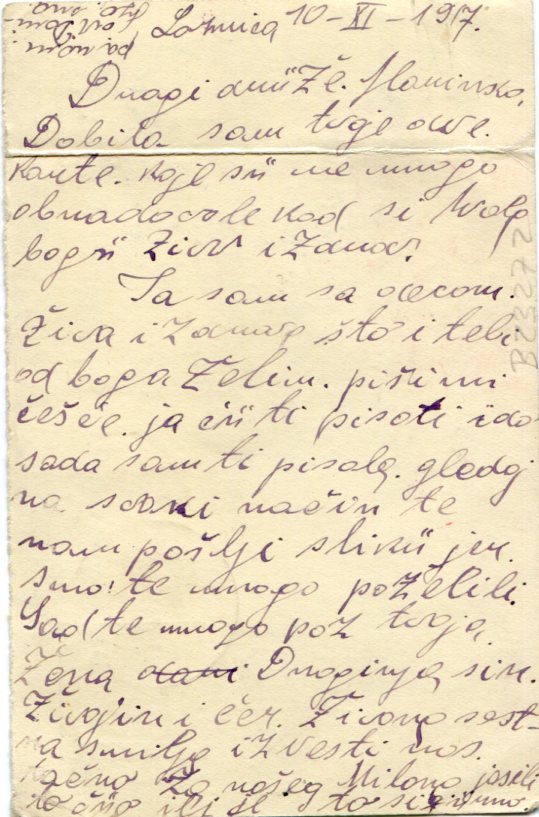 Loznica 10-XI-1917.
Dragi muü Že. Mlaninsko,
Dobila sam tvoje ove.
karte. koje sü me mnogo
obradovale kad si hvala
bogü živ i zdrav.
Ja sam sa decom.
živa i zdrava što i tebi
od boga želim. piši mi
češće. ja ćü ti pisati i do
sada sam ti pisala. gledaj
na svaki način te
nam pošlji slikü jer.
smo te mnogo poželili.
Sad te mnogo poz tvoja,
Žena Draginja sin.
Živojin i ćer. Živana sest-
ra Smilja izvesti nas.
tačno za našeg Milana jesili
točno ili je što si
B23272